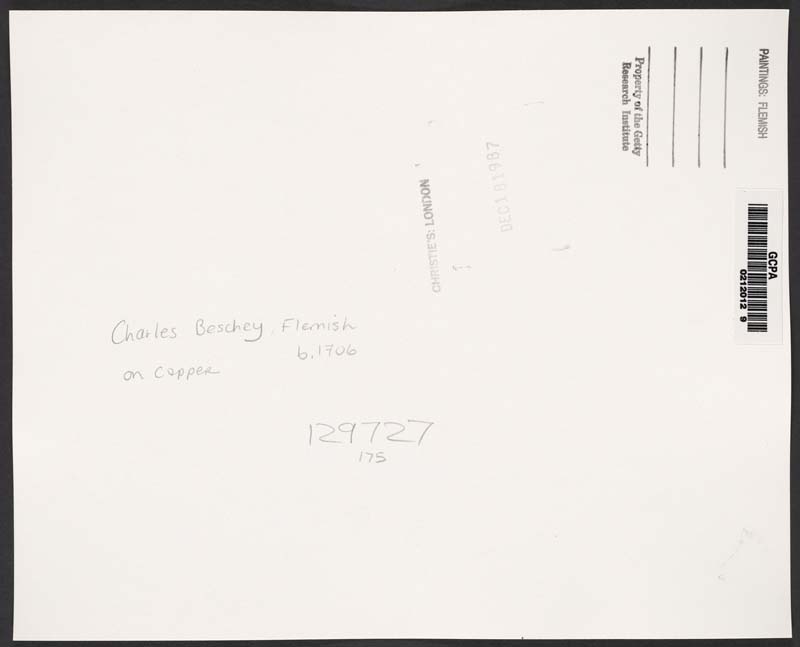 PAINTINGS: FLEMISH
Property of the Getty
Research Institute
GCPA
0212012 9
DEC 18 1987
CHRISTIE'S: LONDON
Charles Beschey, Flemish
b. 1706
on copper
129727
175